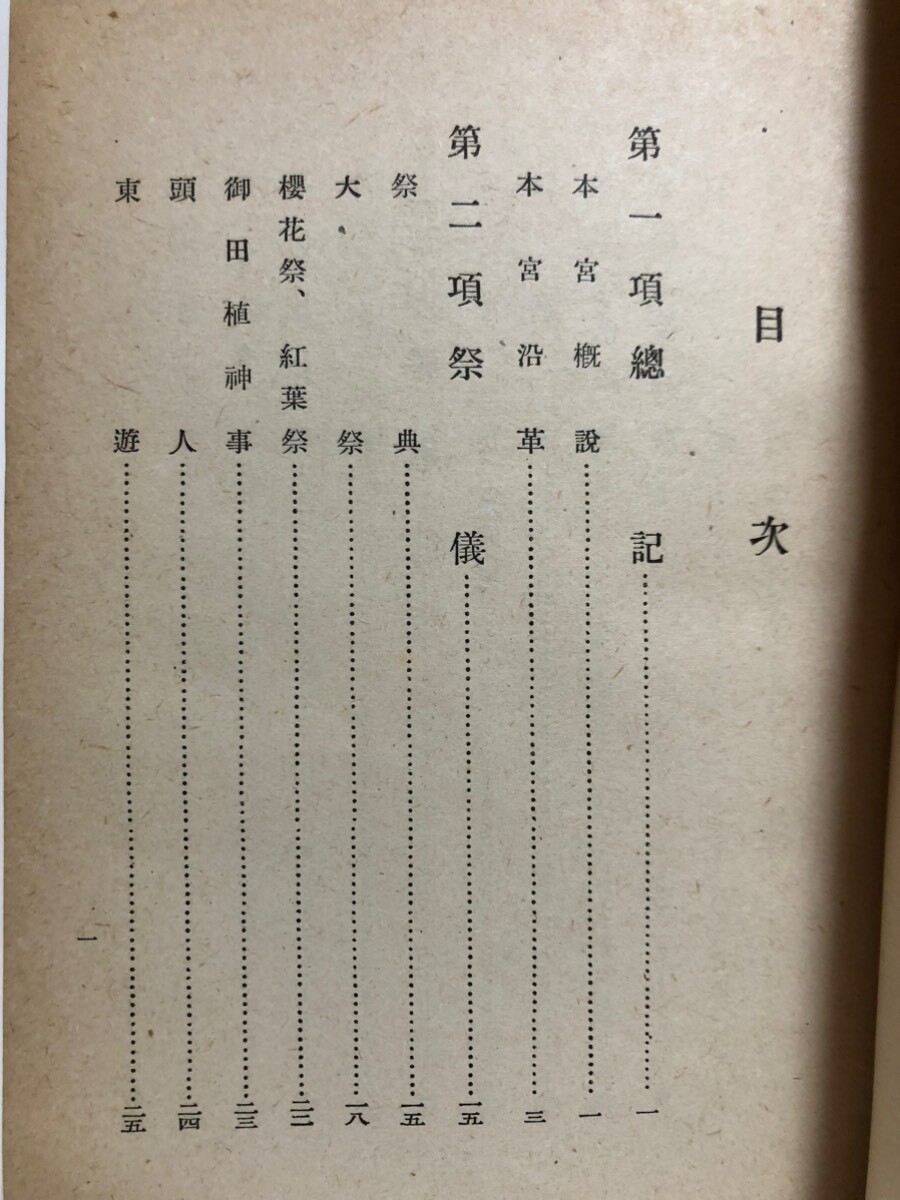 目次
第一項總記……一
本宮概說……一
本宮沿革……三
第二項祭儀……一五
祭典……一五
大祭……一八
櫻花祭、紅葉祭……二二
御田植神事……二三
頭人……二四
東遊……二五
一